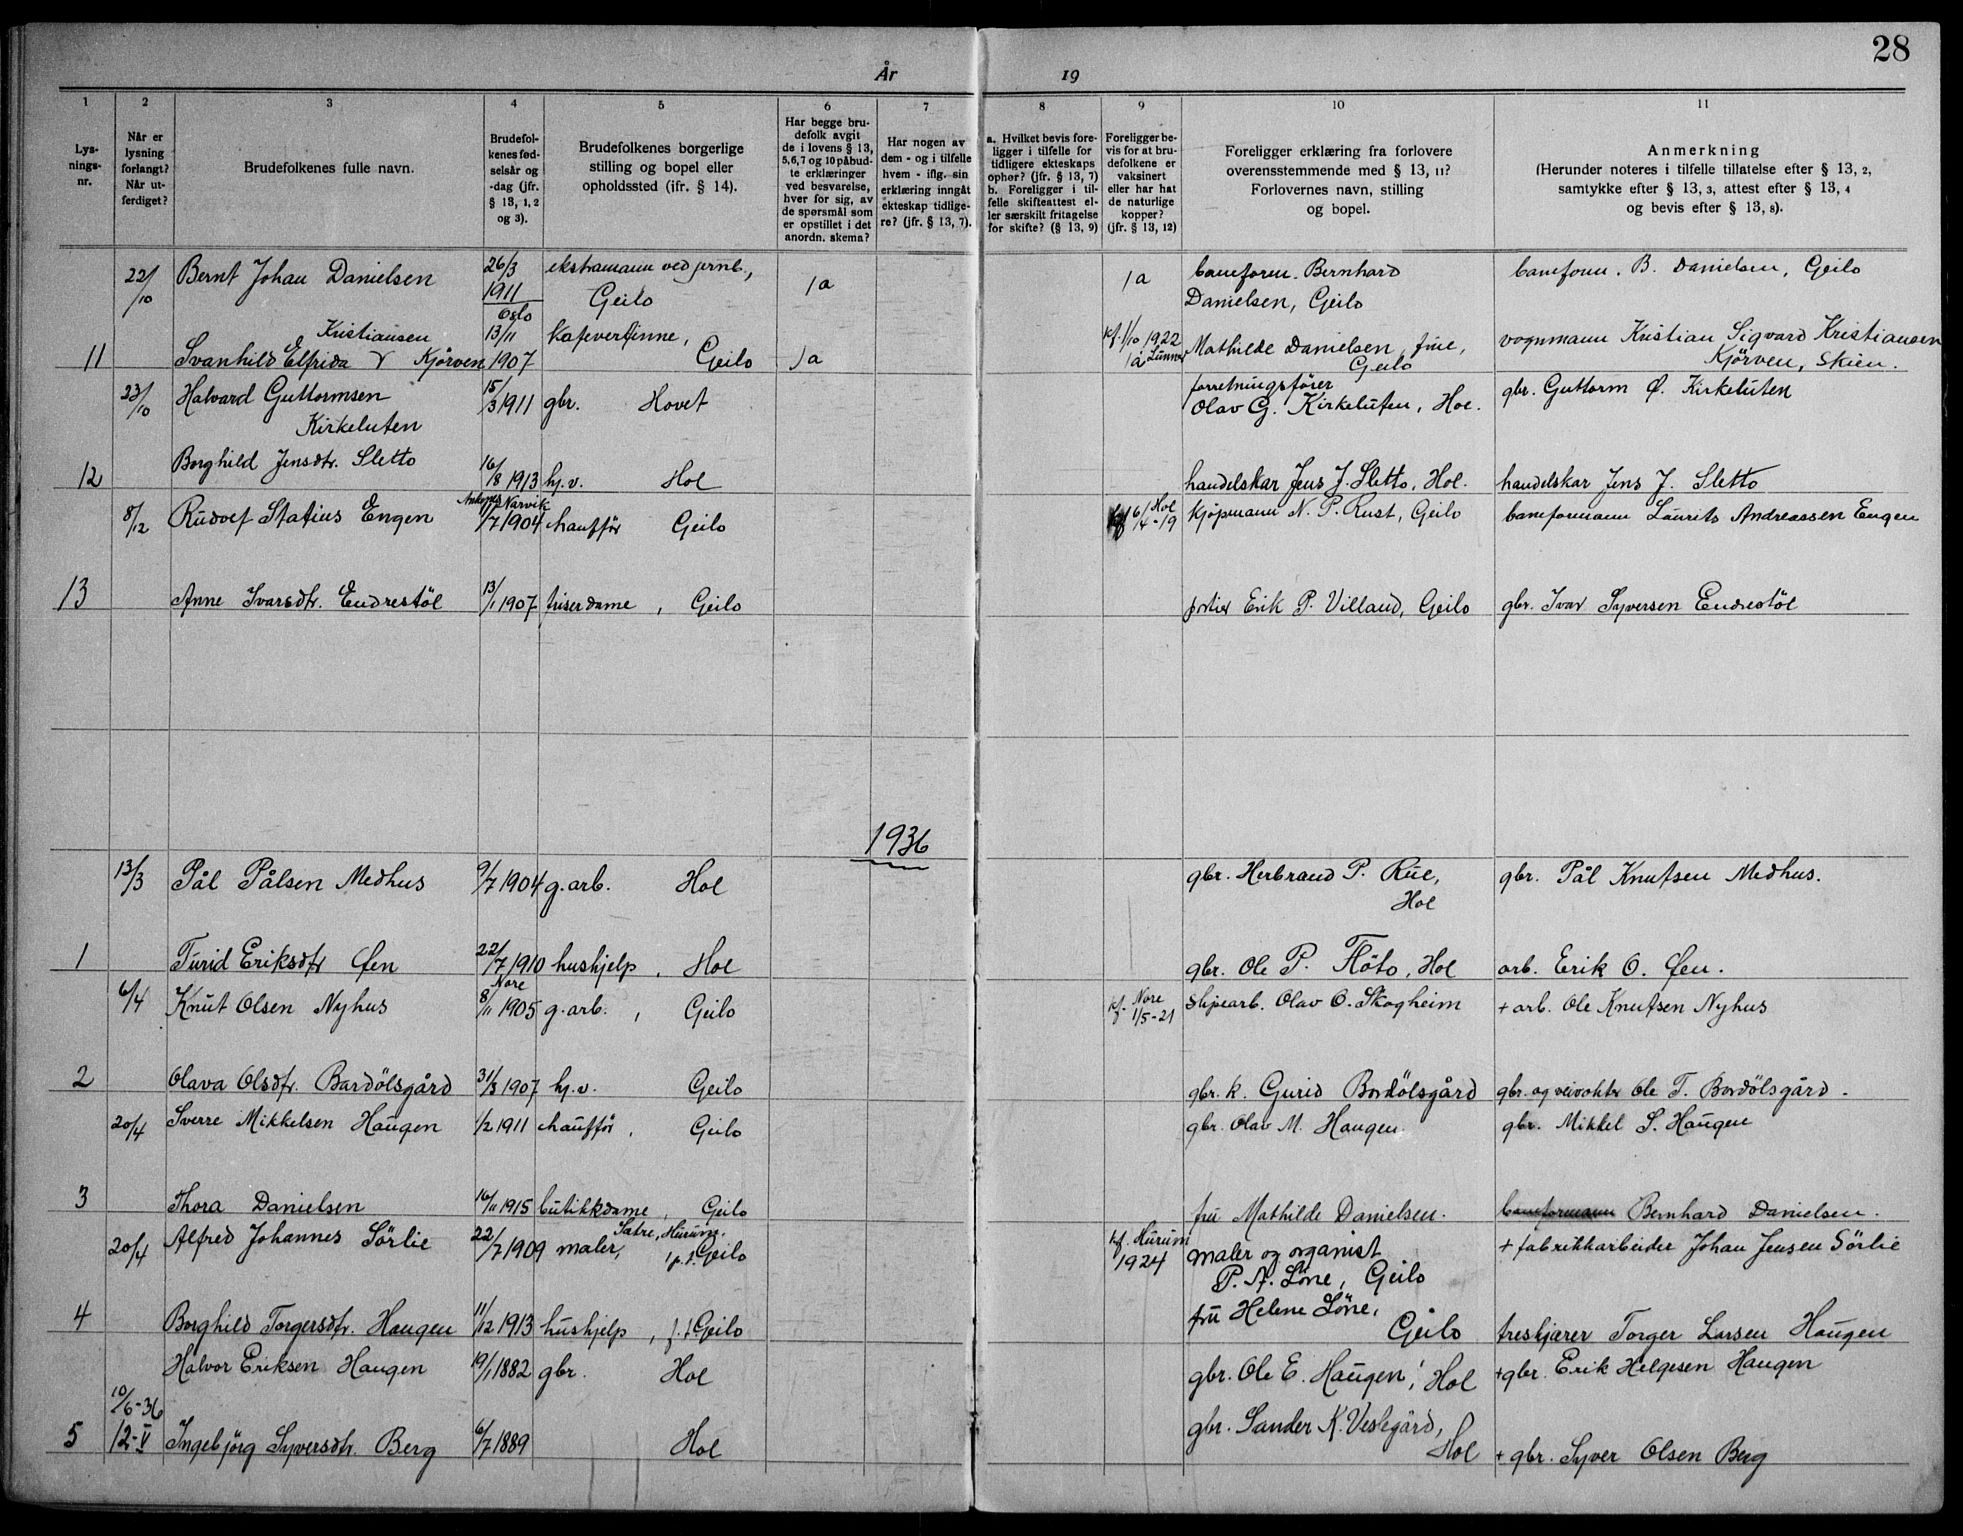 28
År 19
1 2 3 4 5 6 7 8 9 10 11
Lys-
nings-
nr.
Når er
lysning
forlangt?
Når ut-
ferdiget?
Brudefolkenes fulle navn.
Brudefol-
kenes fød-
selsår og
-dag (jfr.
§ 13, 1, 2
og 3).
Brudefolkenes borgerlige
stilling og bopel eller
opholdssted (ifr. § 14).
Har begge bru-
defolk avgit
de i lovens § 13,
5,6,7 og 10 påbud-
te erklæringer
ved besvarelse,
hver for sig, av
de spørsmål som
er opstillet i det
anordn. skema?
Har nogen av
dem - og i tilfelle
hvem - iflg. sin
erklæring inngått
ekteskap tidlige-
re? (jfr. § 13, 7).
a. Hvilket bevis fore-
ligger i tilfelle for
tidligere ekteskaps
ophør? (jfr. § 13, 7)
b. Foreligger i til-
felle skifteattest el-
ler særskilt fritagelse
for skifte? (§ 13, 9)
Foreligger be-
vis for at bru-
defolkene er
vaksinert
eller har hat
de naturlige
kopper?
(jfr. § 13, 12)
Foreligger erklæring fra forlovere
overensstemmende med § 13, 11?
Forlovernes navn, stilling
og bopel.
Anmerkning
(Herunder noteres i tilfelle tillatelse efter § 13, 2,
samtykke efter § 13, 3, attest efter § 13, 4
og bevis efter § 13, 8).
22/10 Bernt Johan Danielsen 26/3 1911 Oslo ekstramann ved jernb., Geilo ja ja baneform. Bernhard
Danielsen, Geilo
baneform. B. Danielsen, Geilo
Kristiansen
11 Svanhild Elfrida Kjörven 13/11 1907 kafevertinne, Geilo ja kf. 1/10 1922 Mathilde Danielsen, frue,
Geilo
vognmann Kristian Sigvard Kristiansen
Kjörven, Skien.
23/10 Halvard Guttormsen
Kirkeluten
15/3 1911 gbr. Hovet forretningsfører
Olav G. Kirkeluten, Hol.
gbr. Guttorm O. Kirkeluten
12 Borghild Jensdtr. Sletto 16/8 1913 hj.v. Hol handelskar Jens J. Sletto, Hol. handelskar Jens J. Sletto
8/12 Rudolf Statius Engen Narvik /7 1904 chaufför Geilo Hol 6/4-19 kjøpmann N. P. Rust, Geilo baneformann Laurits Andreassen Engen
13 Anne Ivarsdtr. Endrestöl 13/1 1907 friserdame, Geilo portier Erik P. Villand, Geilo gbr. Ivar Syversen Endrestöl
1936
13/3 Pål Pålsen Medhus 9/7 1904 g.arb. Hol gbr. Herbrand P. Rue,
Hol
gbr. Pål Knutsen Medhus.
1 Turid Eriksdtr Øen 22/7 1910 hushjelp, Hol gbr. Ole P. Flöto, Hol arb. Erik O. Øen.
6/4 Knut Olsen Nyhus Nore 8/11 1905 g.arb., Geilo kf. Nore 1/5-21 slipearb. Olav O. Skogheim + arb. Ole Knutsen Nyhus
2 Olava Olsdtr. Bardölsgård 31/3 1907 hj.v. Geilo gbr.k. Gurid Bardölsgård gbr. og veivokter Ole T. Bardölsgård.
20/4 Sverre Mikkelsen Haugen 1/2 1911 chaufför, Geilo gbr. Olav M. Haugen. gbr. Mikkel S. Haugen
3 Thora Danielsen 16/11 1915 butikkdame, Geilo fru Mathilde Danielsen. baneformann Bernhard Danielsen.
20/4 Alfred Johannes Sörlie 22/7 1909 maler, Sætre, Hurum.
p.t. Geilo
kf. Hurum
1924
maler og organist
P. A. Löne, Geilo
+ fabrikkarbeider Johan Jensen Sörlie
4 Borghild Torgersdtr. Haugen 11/12 1913 hushjelp, p.t. Geilo fru Helene Löne,
Geilo
treskjærer Torger Larsen Haugen
Halvor Eriksen Haugen 19/1 1882 gbr. Hol gbr. Ole E. Haugen, Hol + gbr. Erik Helgesen Haugen
10/6-36
5 12-V Ingebjörg Syversdtr. Berg 6/7 1889 Hol gbr. Sander K. Veslegård,
Hol
+ gbr. Syver Olsen Berg